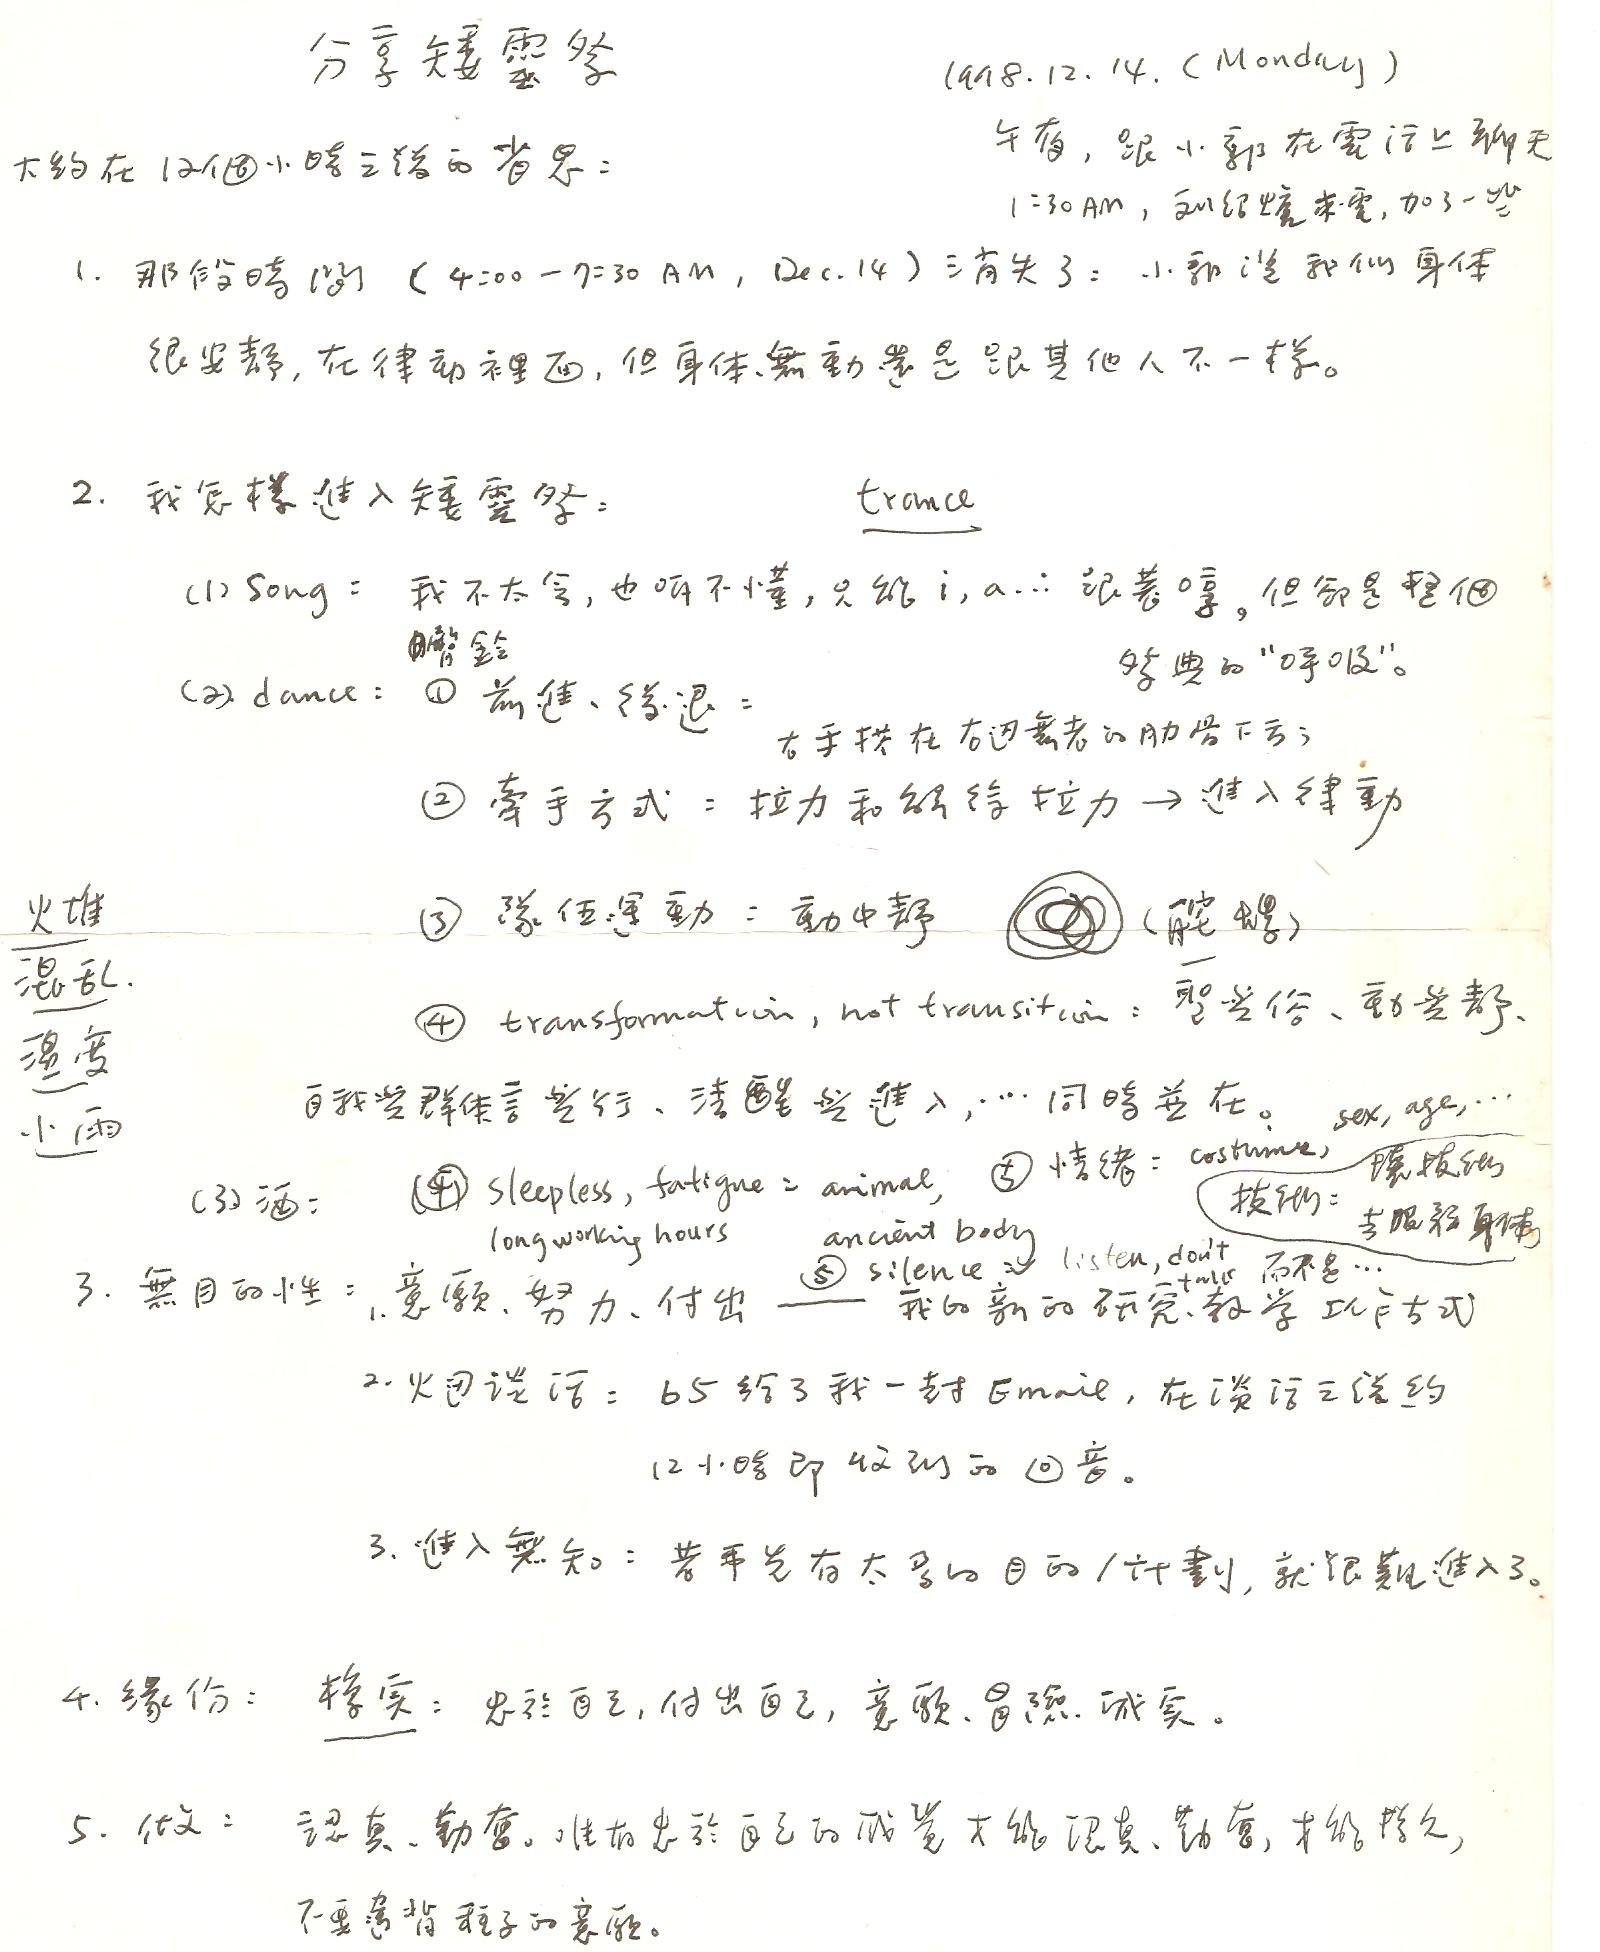 分享矮靈祭
1998.12.14. (Monday)
午夜, 跟小郭在電話上聊天
1:30 AM, 劉紹爐來電, 加了一些
大約在12個小時之後的省思:
1. 那段時間 (4:00-7:30 AM, Dec. 14) 消失了: 小郭說我們身体
很安靜, 在律動裡面, 但身体、舞動還是跟其他人不一樣。
2. 我怎樣進入矮靈祭:
trance
(1) Song: 我不太會, 也听不懂, 只能 i, a... 跟著哼。但卻是整個
祭典的"呼吸"。
臀鈴
(2) dance: ① 前進、後退:
右手拱在右边舞者的肋骨下方;
② 牽手方式: 拉力和解除拉力 → 進入律動
③ 隊伍運動: 動中靜 (陀螺)
④ transformation, not transition: 聖與俗、動與靜、
自我與群体言與行、清醒與進入, ... 同時並在。
火堆
混乱.
溫度
小雨
(3) 酒:
④ sleepless, fatigue = animal,
long working hours ancient body
⑤ 情緒: costume, sex, age, ...
技術: 讓技術
去服務身体
而不是...
⑤ silence: listen, don't
talk
3. 無目的性: 1. 意願、努力、付出 —— 我的新的研究、教学工作方式
2. 火边談話: b5 給了我一封 Email, 在談話之後約
12小時即收到的回音。
3. 進入無知: 若事先有太多的目的/計劃, 就很難進入了。
4. 緣份: 樸实: 忠於自己, 付出自己, 意願、冒險、誠实。
5. 作文: 認真、勤奮。唯有忠於自己的感覺才能認真、勤奮, 才能持久,
不要違背種子的意願。